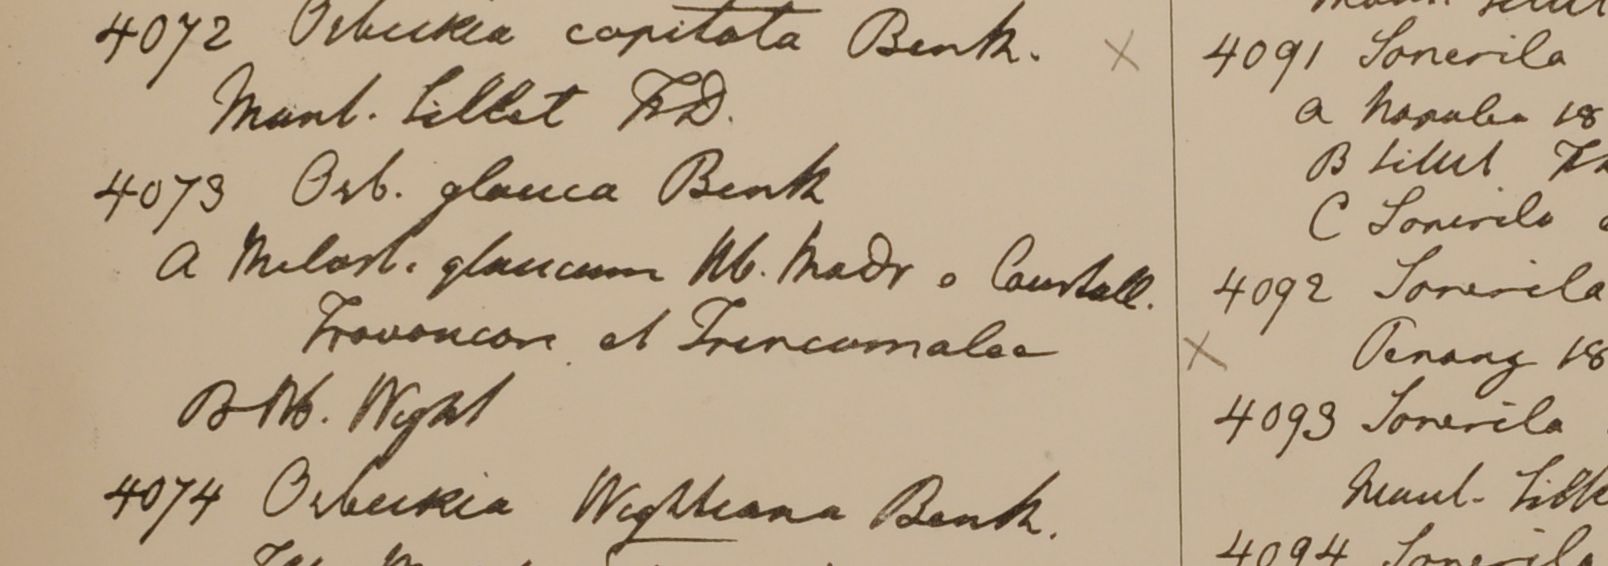 4072 Osbeckia capitata Benth. ×
Mont. Sillet F.D.
4073 Osb. glauca Benth
a Melast. glaucum Hb. Madr
Travancore et Trincomalee
B Hb. Wight
4074 Osbeckia Wightiana Benth.
4091 Sonerila
a Napalia 18
B Sillet
C Sonerila
4092 Sonerila
× Penang 18
4093 Sonerila
Mont. Sille
4094 Sonerila